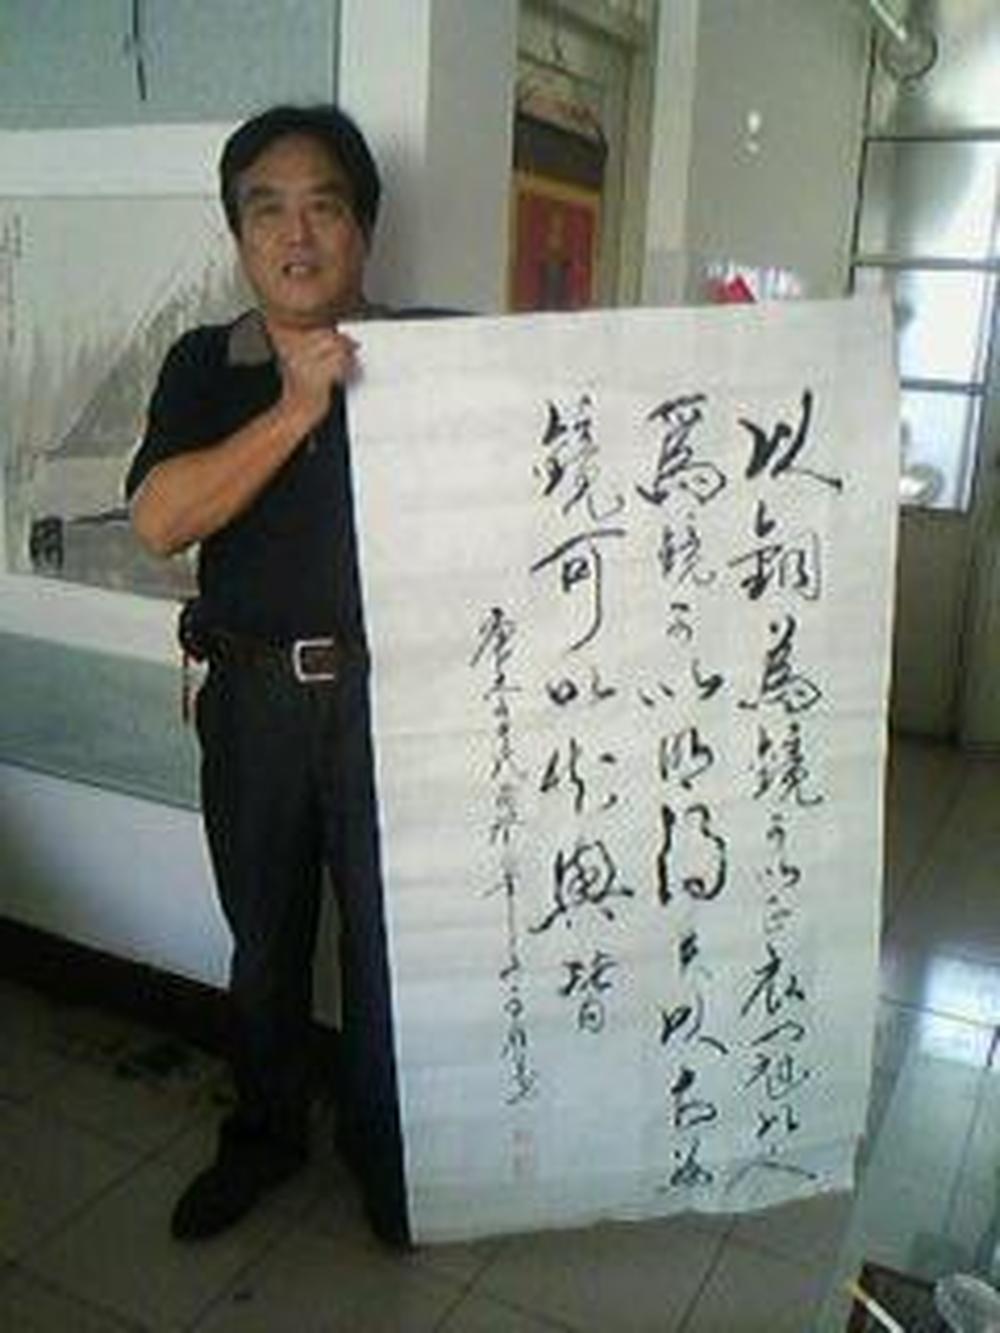 以銅為鏡可以正衣冠以人
爲鏡可以明得失以古為
鏡可以知興替